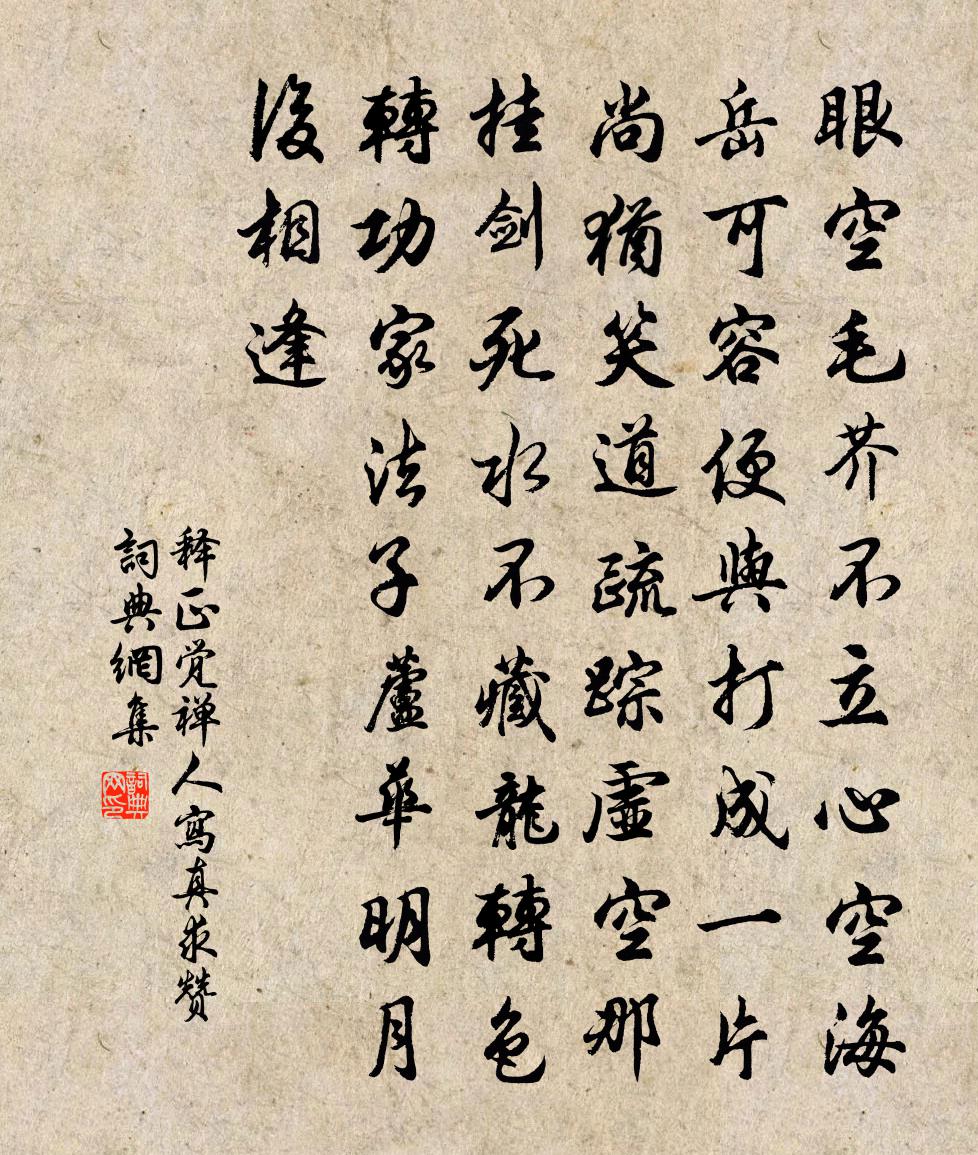 眼空毛芥不立心空海
岳可容便與打成一片
尚猶笑道疏踪虛空那
挂劍死水不藏龍轉色
轉功家法子蘆華明月
後相逢
释正觉禅人寫真求贊
詞典網集
詞典
网印